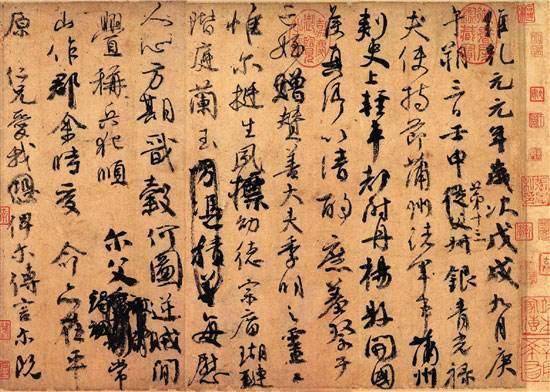 維乾元元年歲次戊戌九月庚
午朔三日壬申第十三叔銀青光祿
夫使持節蒲州諸軍事蒲州
刺史上輕車都尉丹楊縣開國
侯真卿以清酌庶羞祭于
亡姪贈贊善大夫季明之靈曰
惟爾挺生夙標幼德宗廟瑚璉
階庭蘭玉方憑積善每慰
人心方期戩穀何圖逆賊閒
釁稱兵犯順爾父竭誠常
山作郡余時受命亦在平
原仁兄愛我恐俾爾傳言爾既